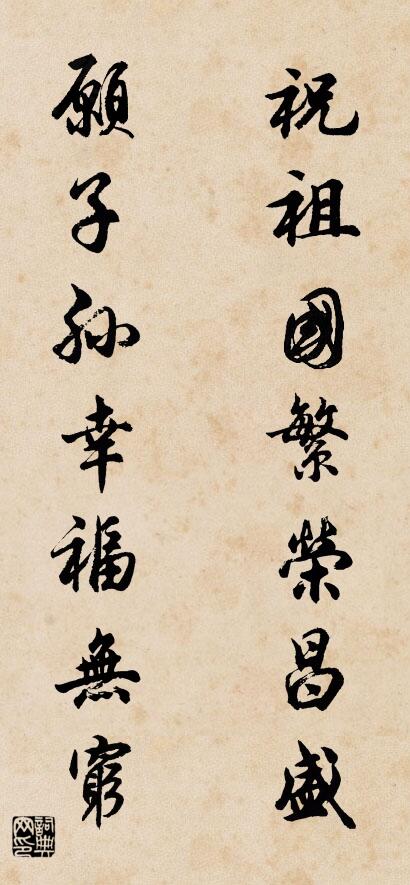 祝祖國繁榮昌盛
願子孫幸福無窮
詞典網印